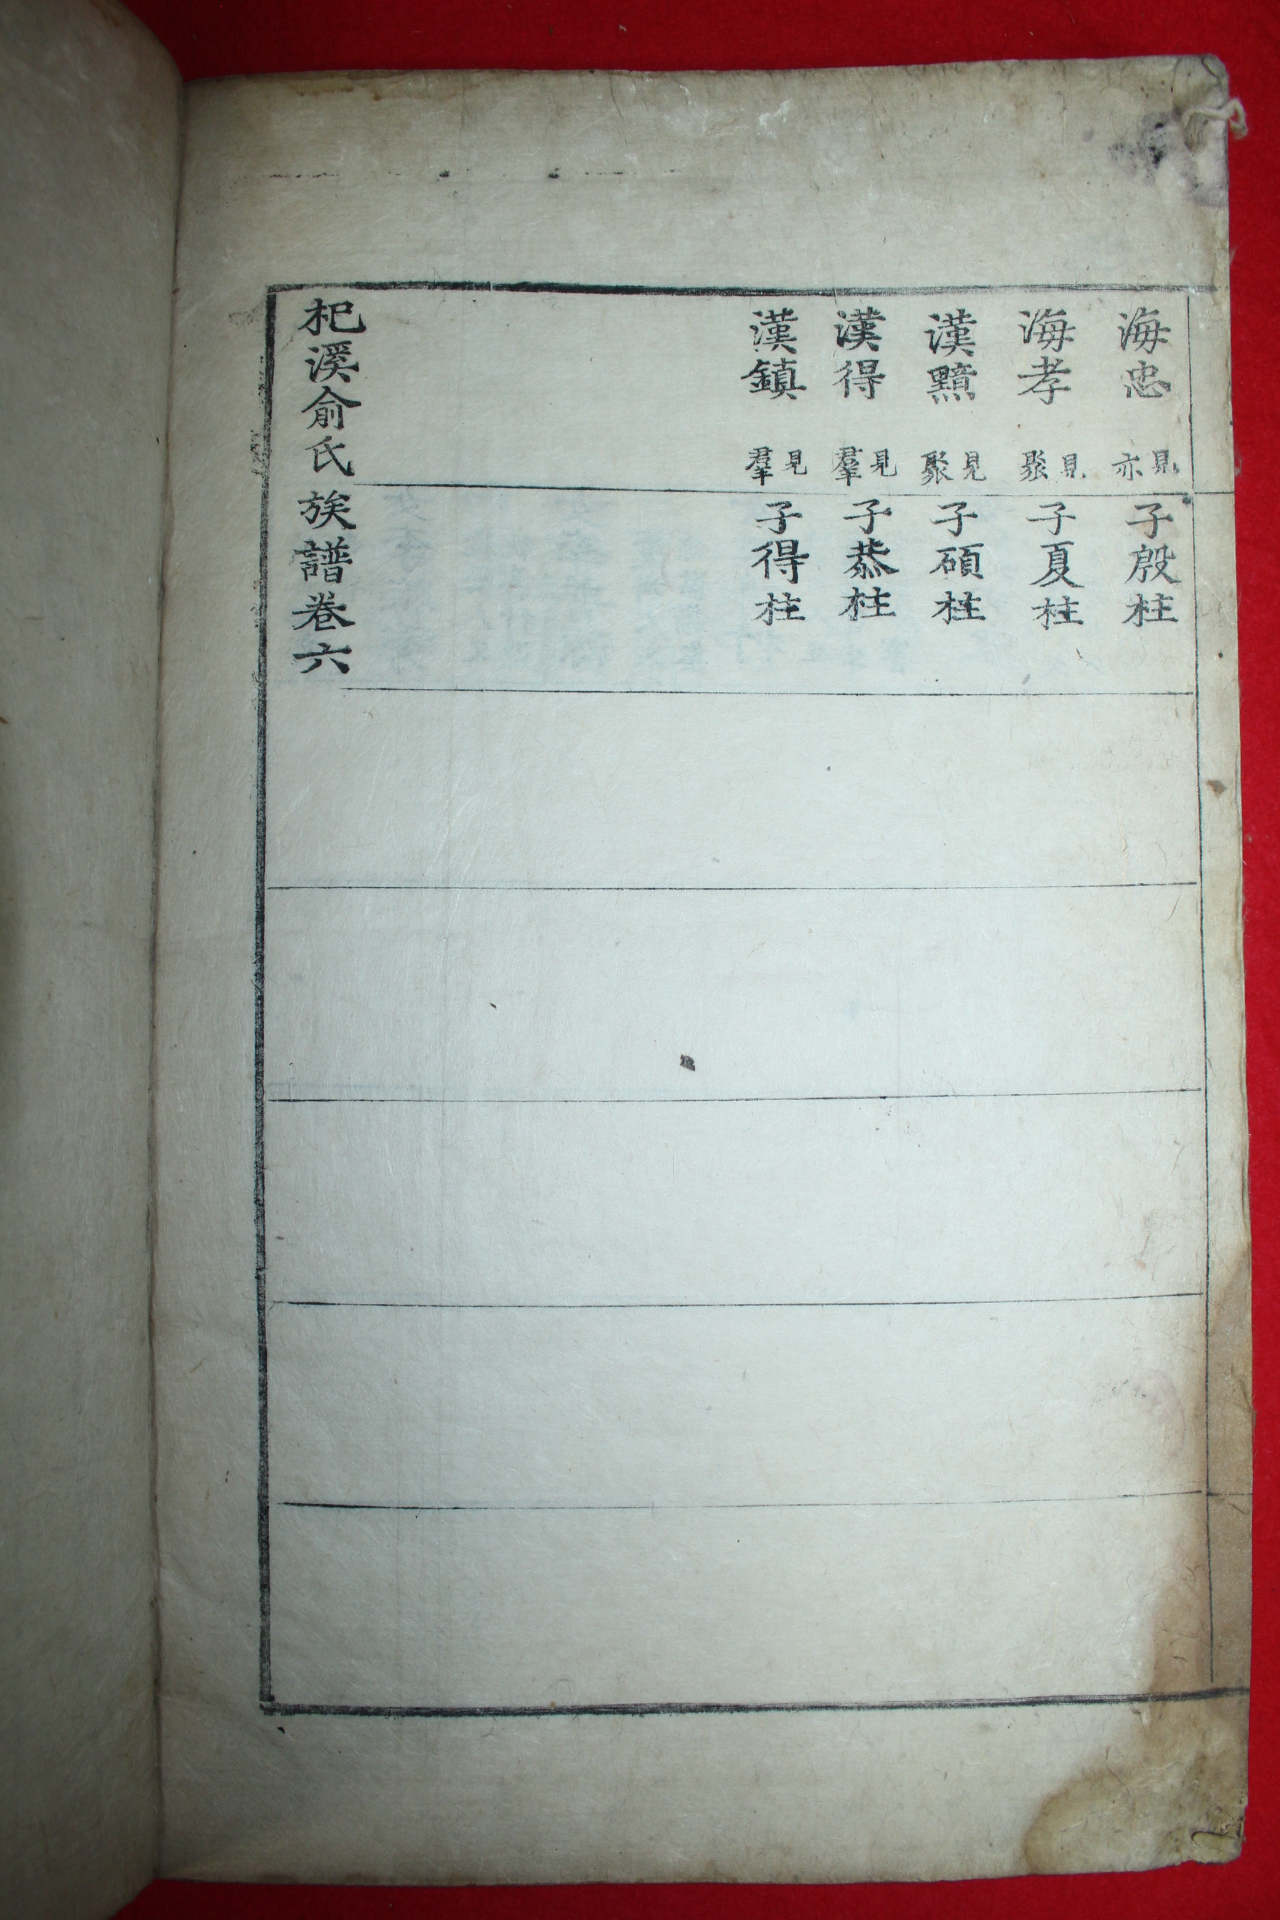 海忠 見亦 子殷柱
海孝 見聚 子夏柱
漢黯 見聚 子碩柱
漢得 見羣 子恭柱
漢鎮 見羣 子得柱
杞溪俞氏族譜卷六